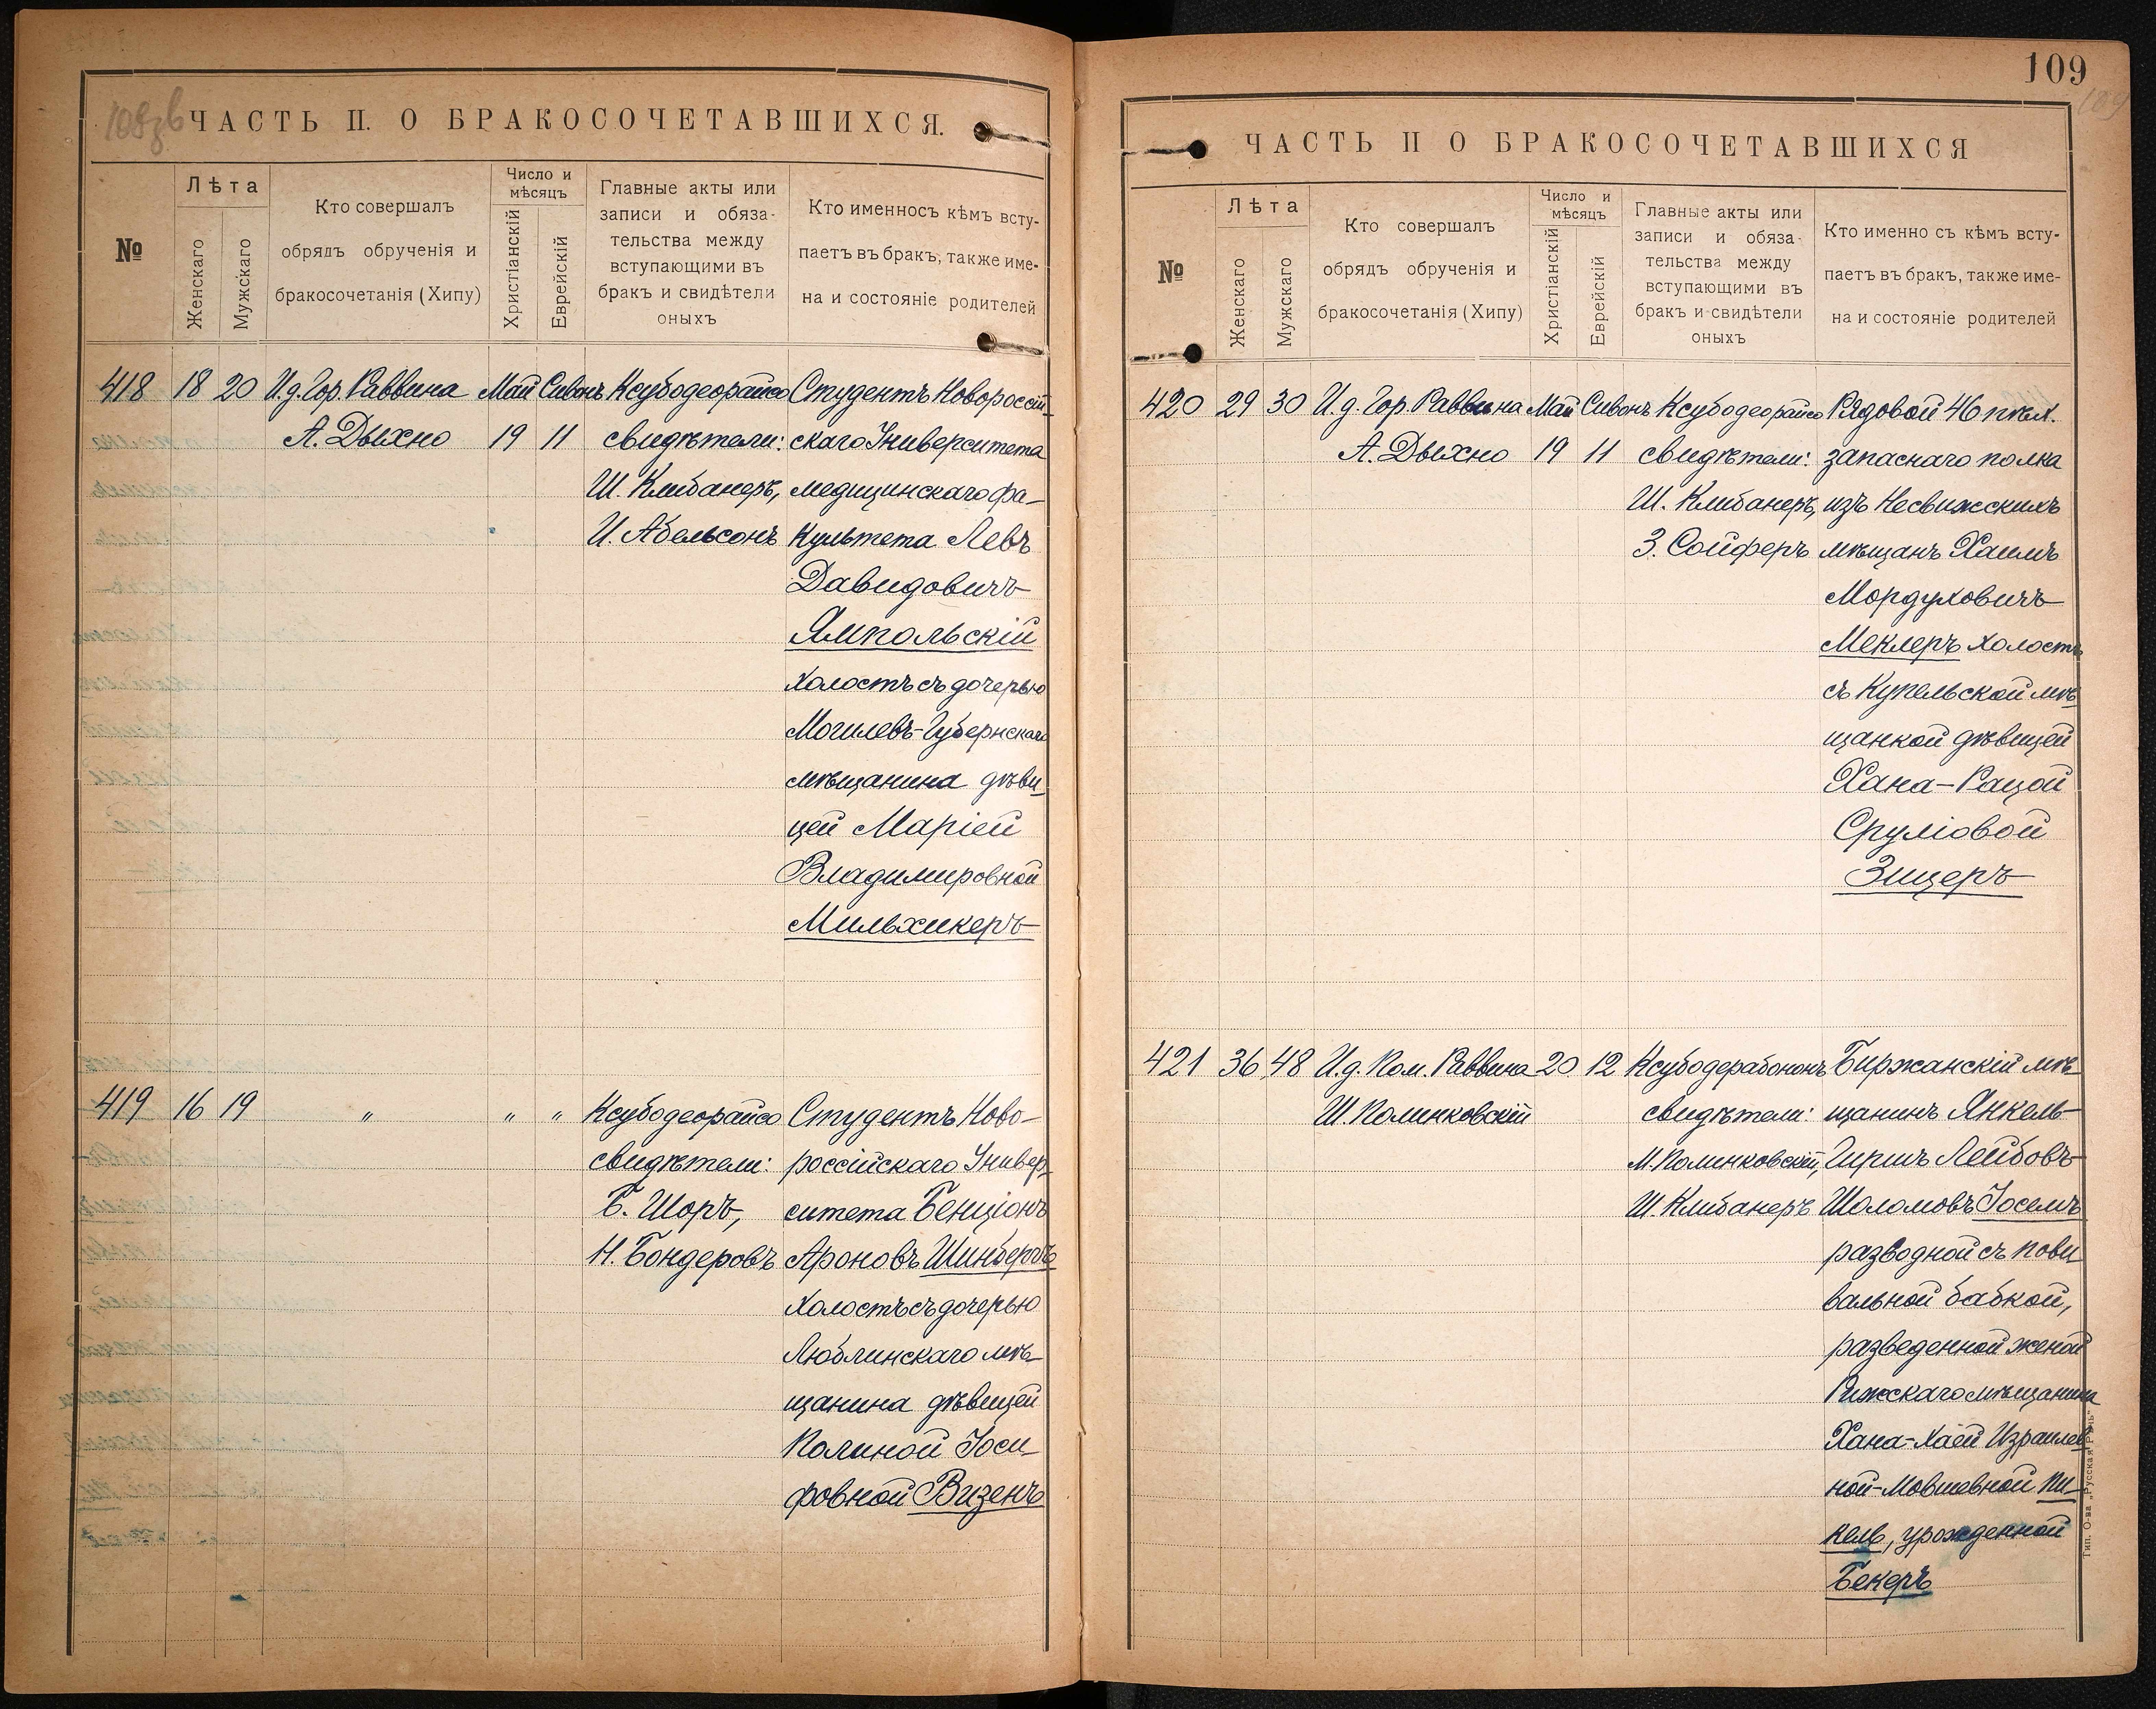 108 зв
ЧАСТЬ II. О БРАКОСОЧЕТАВШИХСЯ.
№
Лѣта
Женскаго
Мужскаго
Кто совершалъ
обрядъ обрученія и
бракосочетанія (Хипу)
Число и
мѣсяцъ
Христіанскій
Еврейскій
Главные акты или
записи и обяза-
тельства между
вступающими въ
бракъ и свидѣтели
оныхъ
Кто именносъ кѣмъ всту-
паетъ въ бракъ, также име-
на и состояніе родителей
418 18 20 И.д. Гор. Раввина Май Сивонъ Ксубодеорайсо Студентъ Новороссій-
А. Дыхно 19 11 свидѣтели: скаго Университета
Ш. Клибанеръ, медицинскаго фа-
И. Абельсонъ культета Левъ
Давидовичъ
Ямпольскій
холостъ съ дочерью
Могилевъ-Губернскаго
мѣщанина дѣви-
цей Маріей
Владимировной
Мильхикеръ
419 16 19 „ „ „ Ксубодеорайсо Студентъ Ново-
свидѣтели: россійскаго Универ-
Б. Шоръ, ситета Бенціонъ
Н. Бондеровъ Ароновъ Шинбергъ
холостъ съ дочерью
Люблинскаго мѣ-
щанина дѣвицей
Полиной Іоси-
фовной Визенъ
109
109
ЧАСТЬ II О БРАКОСОЧЕТАВШИХСЯ
№
Лѣта
Женскаго
Мужскаго
Кто совершалъ
обрядъ обрученія и
бракосочетанія (Хипу)
Число и
мѣсяцъ
Христіанскій
Еврейскій
Главные акты или
записи и обяза-
тельства между
вступающими въ
бракъ и свидѣтели
оныхъ
Кто именно съ кѣмъ всту-
паетъ въ бракъ, также име-
на и состояніе родителей
420 29 30 И.д. Гор. Раввина Май Сивонъ Ксубодеорайсо Рядовой 46 пѣх.
А. Дыхно 19 11 свидѣтели: запаснаго полка
Ш. Клибанеръ, изъ Несвижскихъ
З. Сойферъ мѣщанъ Хаимъ
Мордуховичъ
Меклеръ холостъ
съ Купельской мѣ-
щанкой дѣвицей
Хана-Рацой
Сруліовой
Зицеръ
421 36 48 И.д. Пом. Раввина 20 12 Ксубодерабононъ Биржанскій мѣ-
Ш. Полинковскій свидѣтели: щанинъ Янкель-
М. Полинковскій, Гиршъ Лейбовъ-
Ш. Клибанеръ Шоломовъ Іосемъ
разводной съ пови-
вальной бабкой,
разведенной женой
Рижскаго мѣщанина
Хана-Хаей Израилев-
ной-Мовшевной Пи-
кель, урожденной
Бекеръ
Тип. О-ва „Русская Рѣчь“